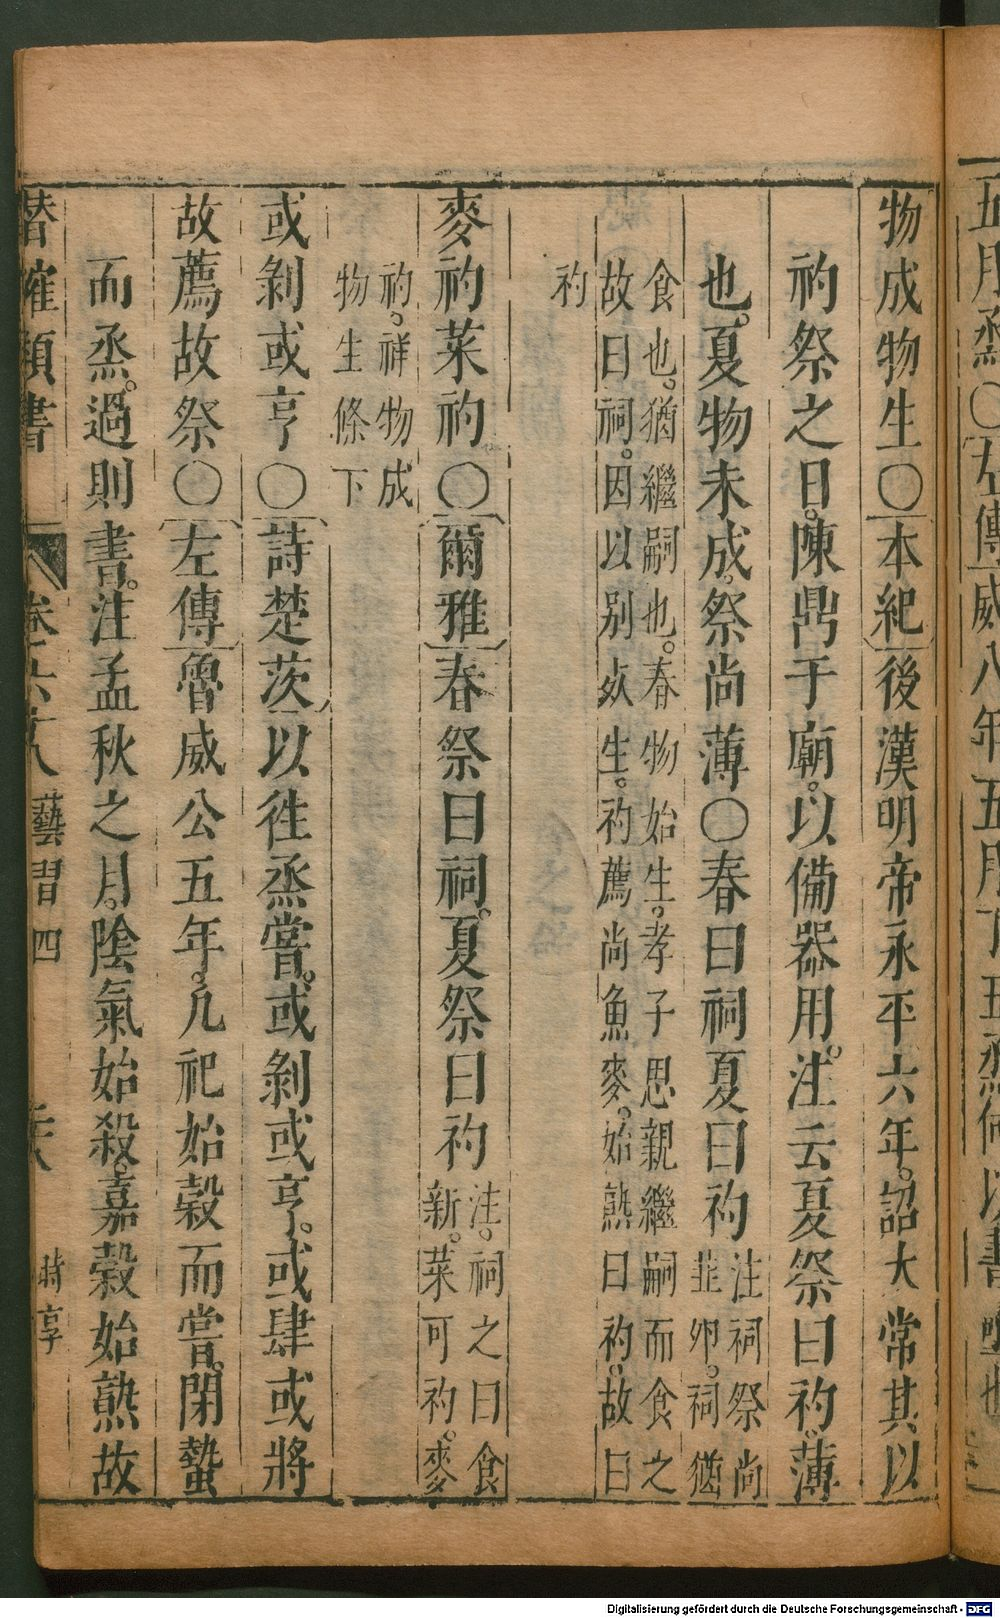 物成物生〇本紀後漢明帝永平六年。詔大常其以
礿祭之日。陳鼎于廟。以備器用。注云夏祭曰礿。薄
也。夏物未成。祭尚薄〇春曰祠夏曰礿注祠祭尚
韭卵。祠猶
食也。猶繼嗣也。春物始生。孝子思親繼嗣而食之
故曰祠。因以别𠬸生。礿薦尚魚麥。始熟曰礿。故曰
礿
麥礿菜礿〇爾雅春祭曰祠。夏祭曰礿注。祠之曰食
新。菜可礿。麥
礿。祥物成
物生條下
或剝或亨〇詩楚茨以徃烝嘗。或剝或亨。或肆或將
故薦故祭〇左傳魯威公五年。凡祀始穀而嘗。閉蟄
而烝。過則書。注孟秋之月。陰氣始殺。嘉穀始熟故
潜確類書 卷六十八 藝習四 時享
Digitalisierung gefördert durch die Deutsche Forschungsgemeinschaft - DFG